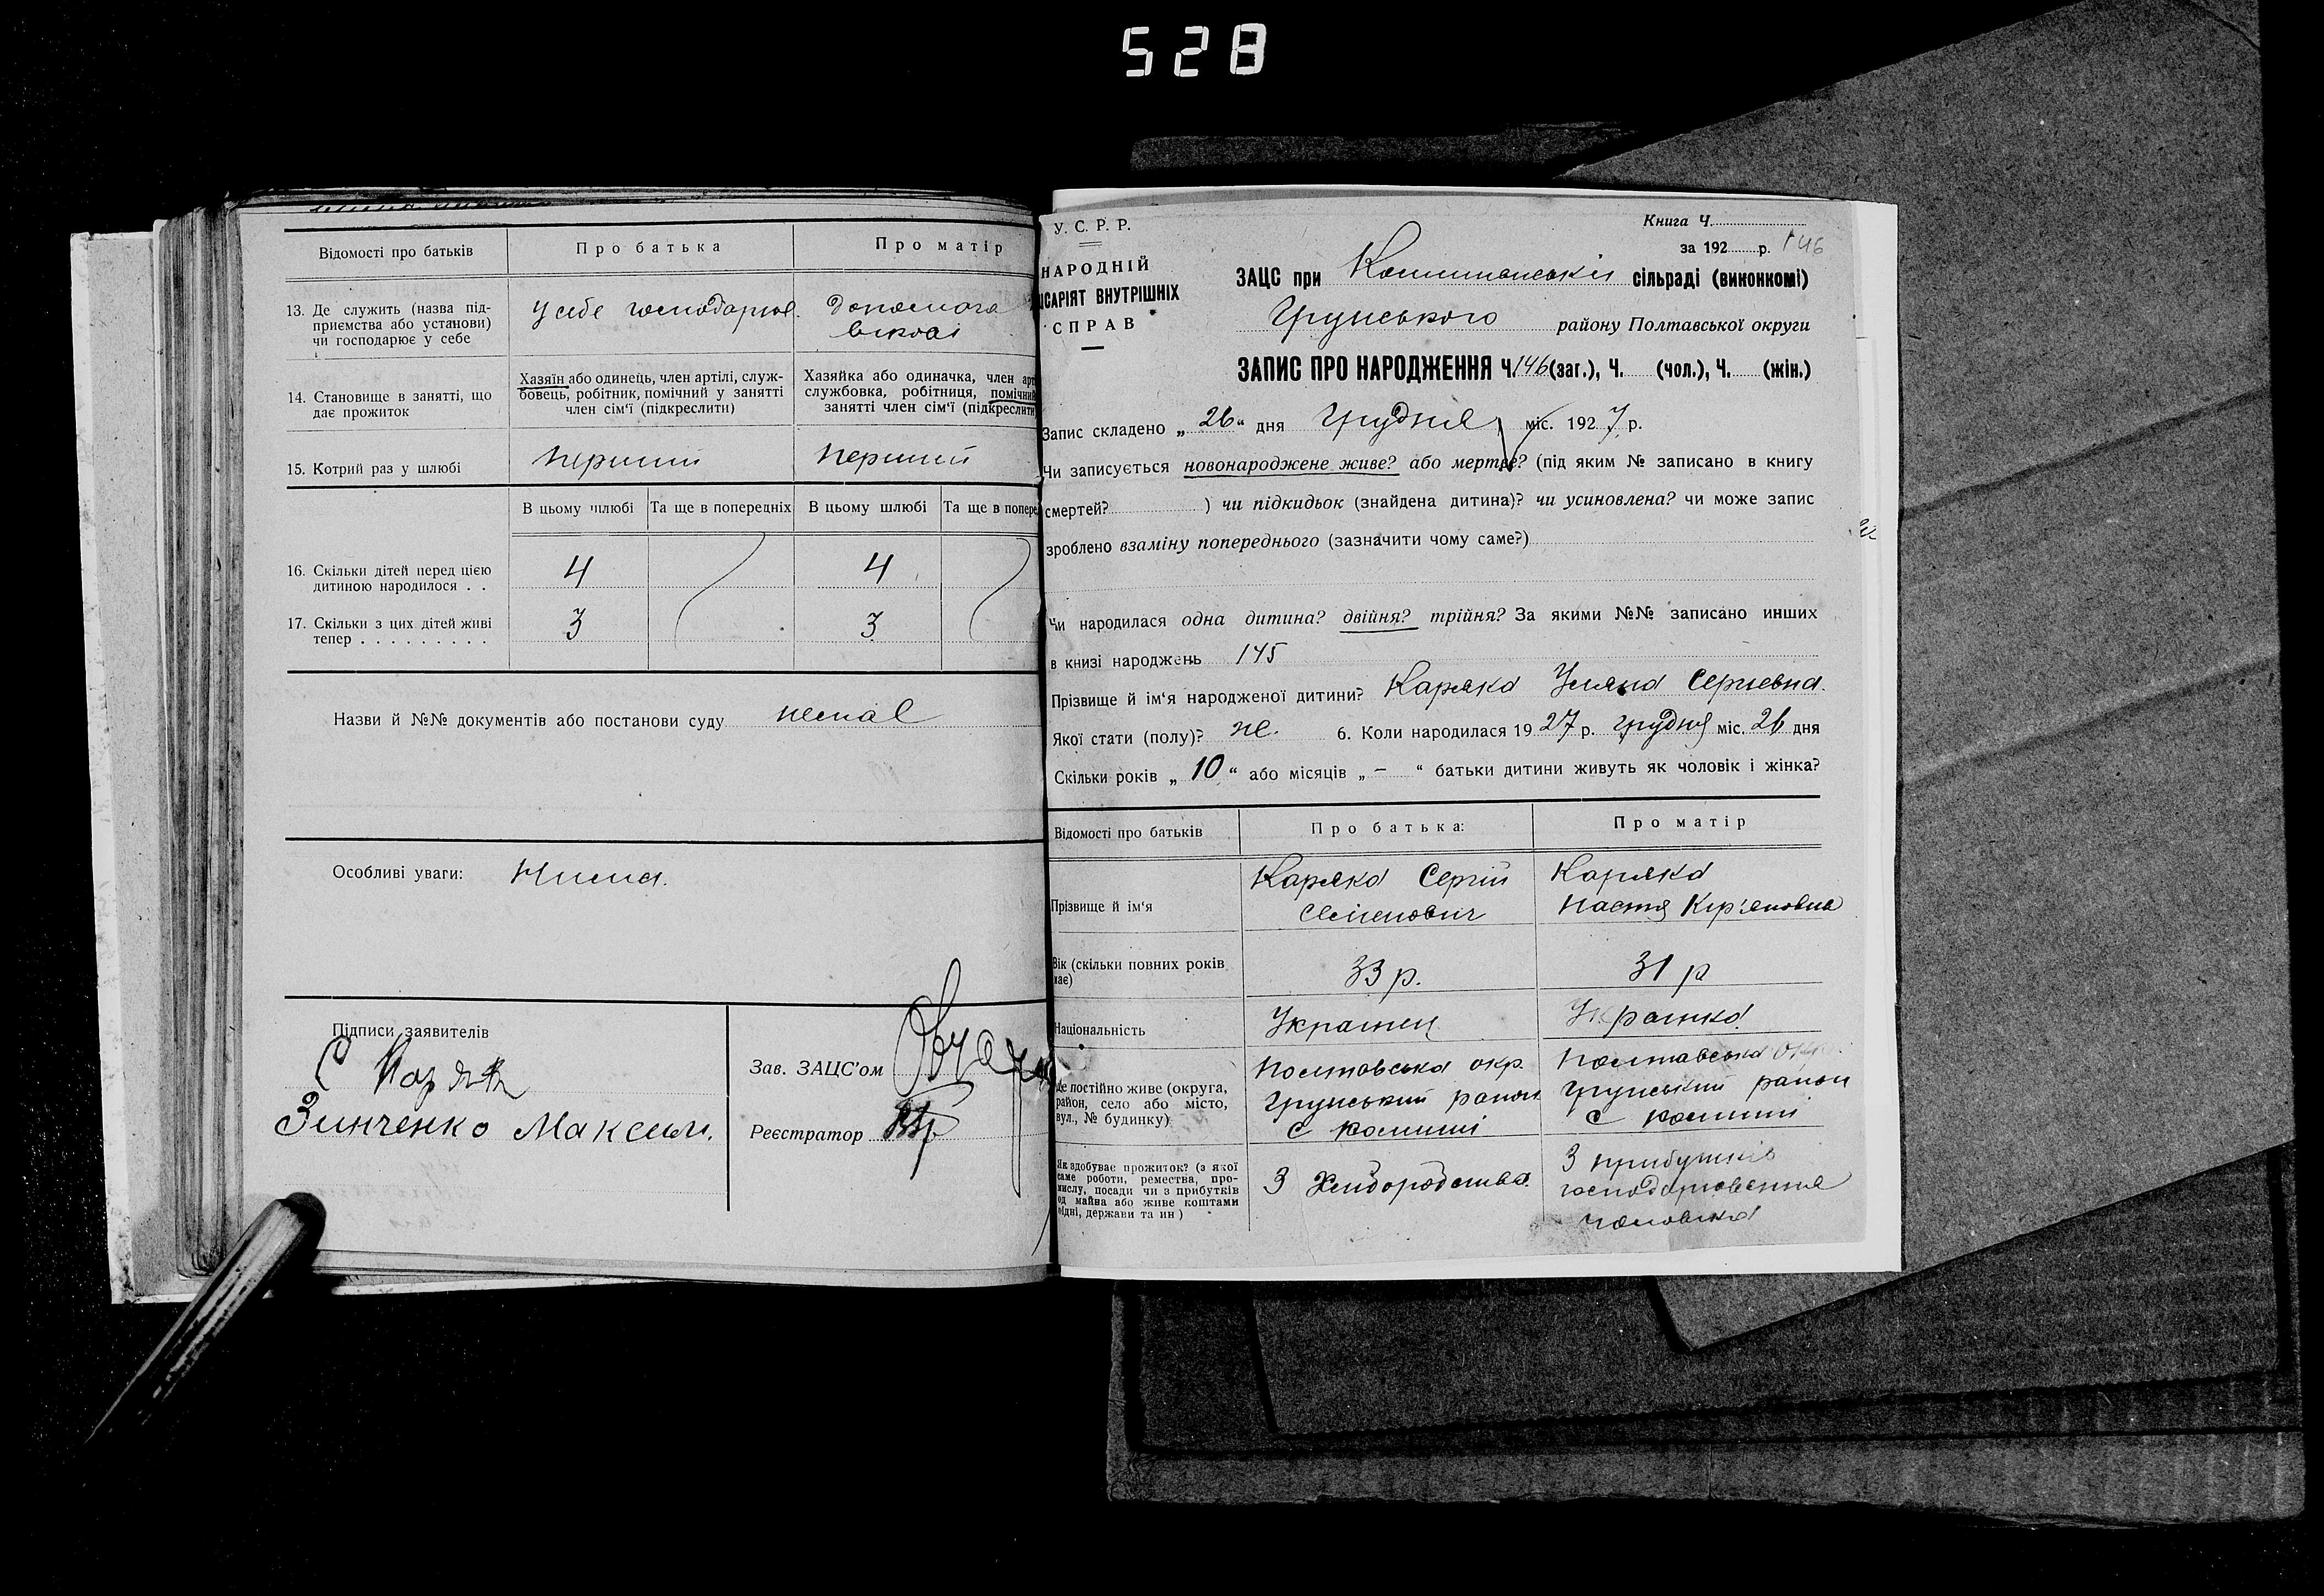 528
Відомості про батьків
Про батька
Про матір
13. Де служить (назва під-
приємства або установи)
чи господарює у себе
у себе господарює.
допомога
14. Становище в занятті, що
дає прожиток
Хазяїн або одинець, член артілі, служ-
бовець, робітник, помічний у занятті
член сім'ї (підкреслити)
Хазяйка або одиначка, член арт
службовка, робітниця, помічний
занятті член сім'ї (підкреслити
15. Котрий раз у шлюбі
перший
перший
В цьому шлюбі
Та ще в попередніх
В цьому шлюбі
Та ще в попере
16. Скільки дітей перед цією
дитиною народилося . .
4
4
17. Скільки з цих дітей живі
тепер . . . . . . . . .
3
3
Назви й №№ документів або постанови суду
немає
Особливі уваги:
Нима.
Підписи заявителів
С Каряка
Зинченко Максим.
Зав. ЗАЦС'ом
Реєстратор
У. С. Р. Р.
НАРОДНІЙ
ІСАРІЯТ ВНУТРІШНІХ
СПРАВ
Книга Ч.
за 192 р. 146
ЗАЦС при сільраді (виконкомі)
Грунського району Полтавської округи
ЗАПИС ПРО НАРОДЖЕННЯ Ч. 146 (заг.), Ч. (чол.), Ч. (жін.)
Запис складено „ 26 “ дня Грудня міс. 1927 р.
Чи записується новонароджене живе? або мертве? (під яким № записано в книгу
смертей? ) чи підкидьок (знайдена дитина)? чи усиновлена? чи може запис
зроблено взаміну попереднього (зазначити чому саме?)
Чи народилася одна дитина? двійня? трійня? За якими №№ записано инших
в книзі народжень 145
Прізвище й ім'я народженої дитини? Каряка Уляна Сергієвна.
Якої стати (полу)? же. 6. Коли народилася 1927 р. грудня міс. 26 дня
Скільки років „ 10 “ або місяців „ – “ батьки дитини живуть як чоловік і жінка?
Відомості про батьків
Про батька:
Про матір
Прізвище й ім'я
Каряка Сергій
Семенович
Каряка
Настя Кир'яновна
Вік (скільки повних років
має)
33 р.
31 р
Національність
Украинец
Украинка.
Де постійно живе (округа,
район, село або місто,
вул., № будинку)
Полтавська окр.
Грунський район
с Комиші
Полтавська окр.
Грунський район
с Комиші
Як здобуває прожиток? (з якої
саме роботи, ремества, про-
мислу, посади чи з прибутків
од майна або живе коштами
рідні, держави та ин)
З Хлібородства.
З прибутків
господарювання
чоловіка